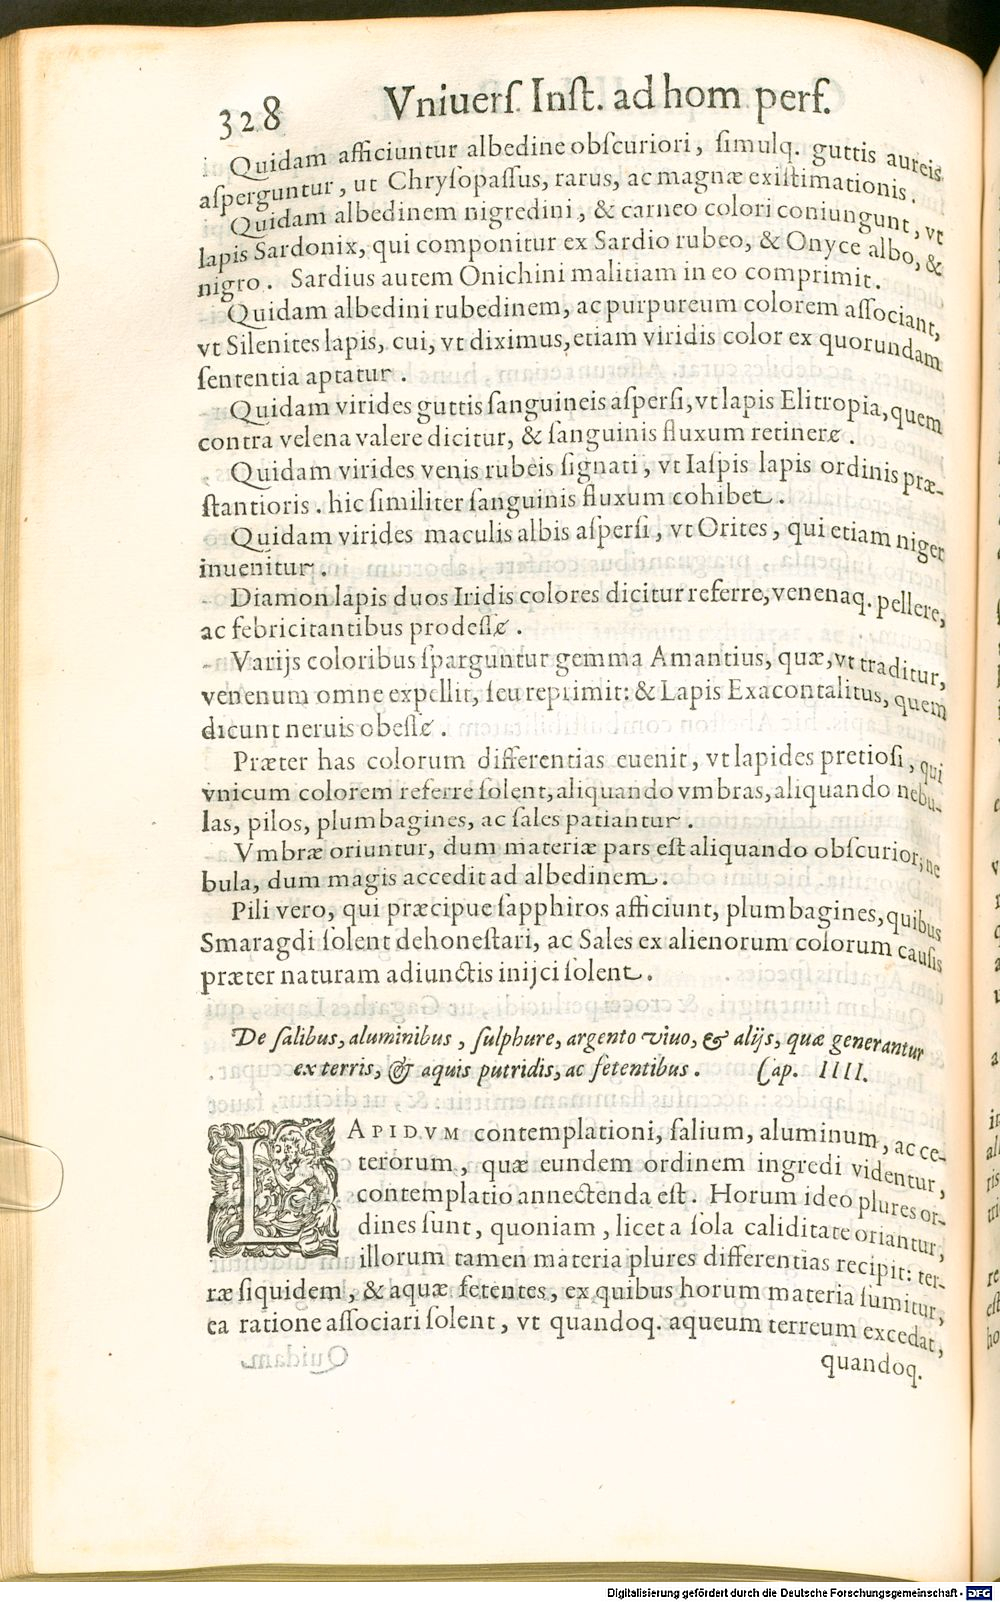 328 Vniuers. Inst. ad hom perf.
Quidam afficiuntur albedine obscuriori, simulq. guttis aureis
asperguntur, ut Chrysopassus, rarus, ac magnæ existimationis.
Quidam albedinem nigredini, & carneo colori coniungunt, vt
lapis Sardonix, qui componitur ex Sardio rubeo, & Onyce albo, &
nigro. Sardius autem Onichini malitiam in eo comprimit.
Quidam albedini rubedinem, ac purpureum colorem associant,
vt Silenites lapis, cui, vt diximus, etiam viridis color ex quorundam
sententia aptatur.
Quidam virides guttis sanguineis aspersi, vt lapis Elitropia, quem
contra velena valere dicitur, & sanguinis fluxum retinere.
Quidam virides venis rubeis signati, vt Iaspis lapis ordinis præ-
stantioris. hic similiter sanguinis fluxum cohibet.
Quidam virides maculis albis aspersi, vt Orites, qui etiam niger
inuenitur.
Diamon lapis duos Iridis colores dicitur referre, venenaq. pellere,
ac febricitantibus prodesse.
Varijs coloribus sparguntur gemma Amantius, quæ, vt traditur,
venenum omne expellit, seu reprimit: & Lapis Exacontalitus, quem
dicunt neruis obesse.
Præter has colorum differentias euenit, vt lapides pretiosi, qui
vnicum colorem referre solent, aliquando vmbras, aliquando nebu-
las, pilos, plumbagines, ac sales patiantur.
Vmbræ oriuntur, dum materiæ pars est aliquando obscurior, ne
bula, dum magis accedit ad albedinem.
Pili vero, qui præcipue sapphiros afficiunt, plumbagines, quibus
Smaragdi solent dehonestari, ac Sales ex alienorum colorum causis
præter naturam adiunctis inijci solent.
De salibus, aluminibus, sulphure, argento viuo, & alijs, quæ generantur
ex terris, & aquis putridis, ac fetentibus. Cap. IIII.
LAPIDVM contemplationi, salium, aluminum, ac ce-
terorum, quæ eundem ordinem ingredi videntur,
contemplatio annectenda est. Horum ideo plures or-
dines sunt, quoniam, licet a sola caliditate oriantur,
illorum tamen materia plures differentias recipit: ter-
ræ siquidem, & aquæ fetentes, ex quibus horum materia sumitur,
ea ratione associari solent, vt quandoq. aqueum terreum excedat,
quandoq.
Digitalisierung gefördert durch die Deutsche Forschungsgemeinschaft - DFG